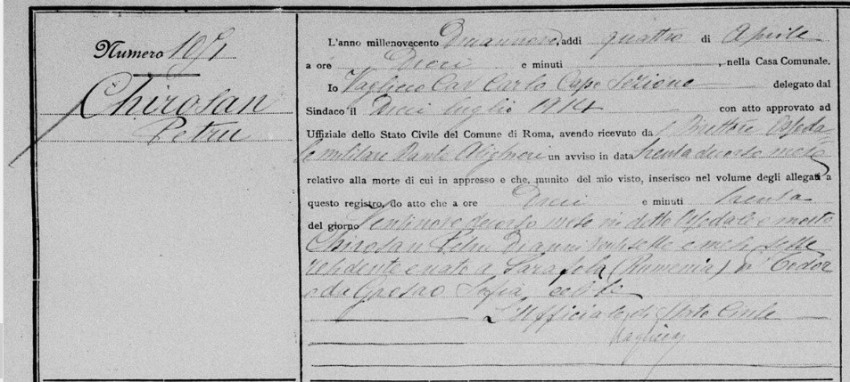 Numero 1051
Chirosan
Petru
L'anno millenovecento Diciannove, addì quattro di Aprile
a ore Dieci e minuti , nella Casa Comunale.
Io Cav Carlo Capo Sezione delegato dal
Sindaco il Dieci luglio 1914 con atto approvato ad
Uffiziale dello Stato Civile del Comune di Roma, avendo ricevuto da l Direttore Ospeda
le militare Dante Alighieri un avviso in data trenta decorso mese
relativo alla morte di cui in appresso e che, munito del mio visto, inserisco nel volume degli allegati a
questo registro, do atto che a ore Dieci e minuti trenta
del giorno Ventinove decorso mese in detto Ospedale è morto
Chirosan Petru D'anni ventisette e mesi sette
residente e nato a (Rumenia) di Teodor
e da Sofia, celibe
L'Ufficiale di Stato Civile